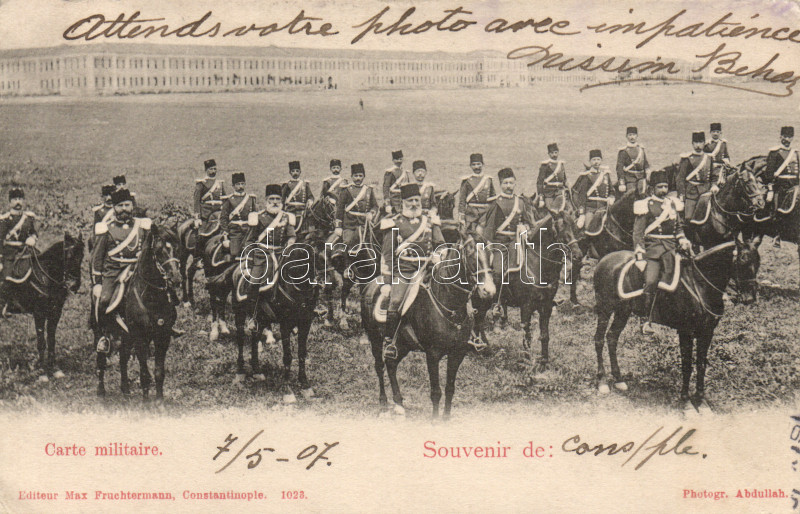 Attends votre photo avec impatience
Nissim Behar
Darabanth
Carte militaire.
7/5-07.
Souvenir de: Cons/ple.
Editeur Max Fruchtermann, Constantinople. 1023.
Photogr. Abdullah.